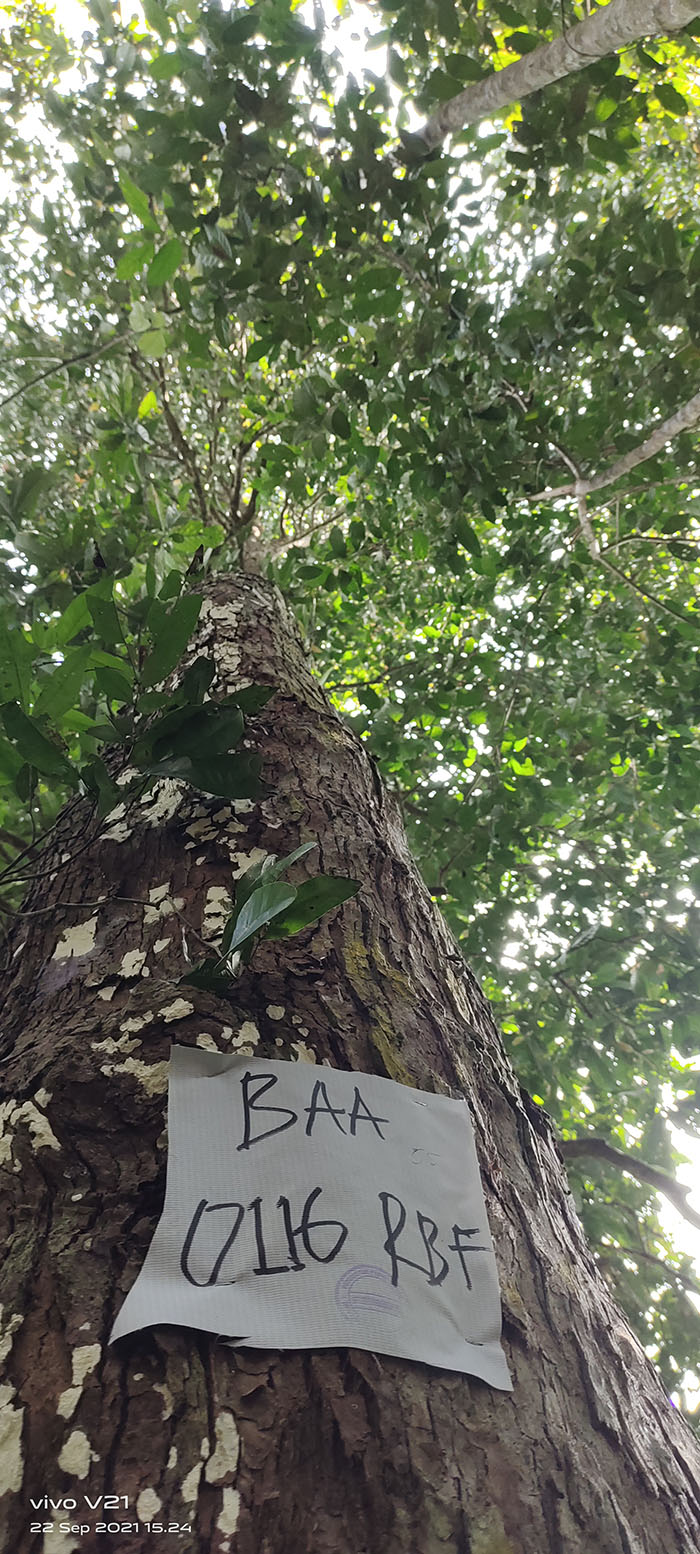 BAA
0116 RBF
vivo V21
22 Sep 2021 15.24